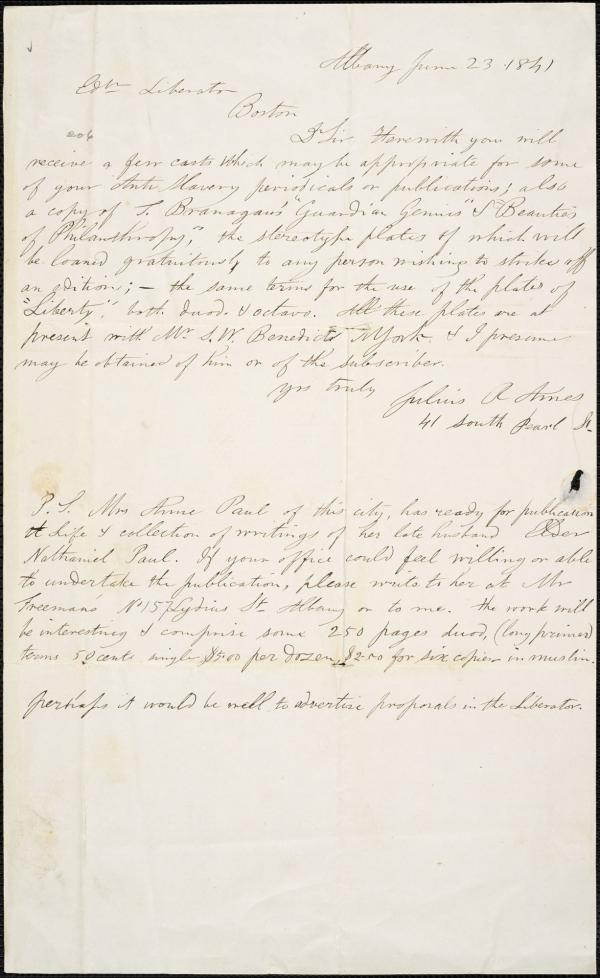 Albany June 23 1841
Edr Liberator
Boston
Dr Sir Herewith you will
receive a few casts which may be appropriate for some
of your Anti Slavery periodicals or publications; also
a copy of T. Branagan's "Guardian Genius" & "Beauties
of Philanthropy", the stereotype plates of which will
be loaned gratuitously to any person wishing to strike off
an edition; – the same terms for the use of the plates of
"Liberty", both duod. & octavo. All these plates are at
present with Mr. S. W. Benedict N York. & I presume
may be obtained of him or of the subscriber.
yrs truly
Julius R Ames
41 South Pearl St.
P. S. Mrs Anne Paul of this city, has ready for publication
A Life & collection of writings of her late husband Elder
Nathaniel Paul. If your office could feel willing or able
to undertake the publication, please write to her at Mr
Freemans No 157 Lydius St. Albany or to me. The work will
be interesting & comprise some 250 pages duod, (long primer)
terms 50 cents single $5.00 per dozen, $2.50 for six copies in muslin.
perhaps it would be well to advertise proposals in the Liberator.